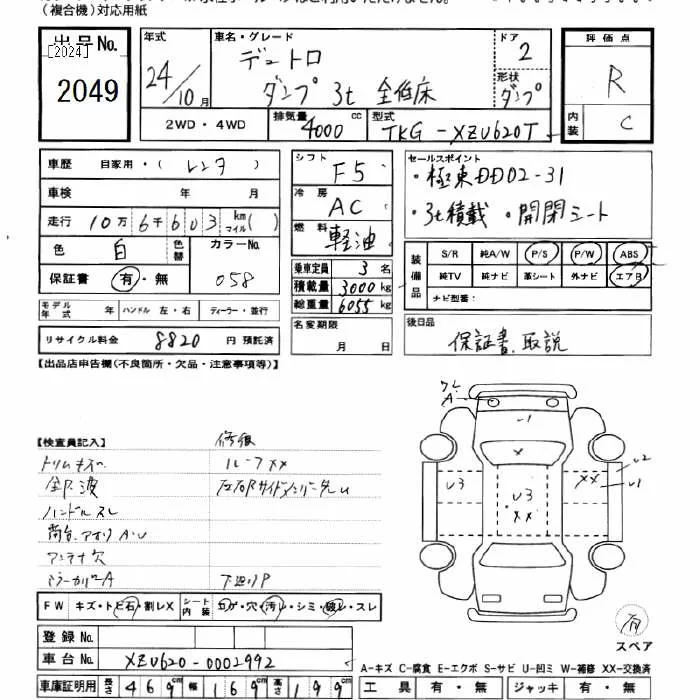 (複合機)対応用紙
出品No.
[2024]
2049
年式
24年/10月
車名・グレード
デュトロ
ダンプ 3t 全低床
ドア
2
形状
ダンプ
評価点
R
内装
C
2WD・4WD
排気量
4000 cc
型式
TKG-XZU620T
車歴 自家用・(レンタ)
車検 年 月
走行 10万6千603 km マイル( )
色 白 色替 カラーNo. 058
保証書 有・無
モデル年式 年 ハンドル 左・右 ディーラー・並行
リサイクル料金 8820 円 預託済
シフト F5
冷房 AC
燃料 軽油
乗車定員 3 名
積載量 3000 kg
総重量 6055 kg
名変期限
月 日
セールスポイント
・極東DD02-31
・3t積載 ・開閉シート
装備品
S/R 純A/W P/S P/W ABS
純TV 純ナビ 革シート 外ナビ エアB
ナビ型番:
後日品
保証書、取説
【出品店申告欄(不良箇所・欠品・注意事項等)】
【検査員記入】
修復
ルーフXX
全体波
ハンドルスレ
荷台、アオリA・U
アンテナ欠
下廻りP
A
U1
X
U3
U3
XX
XX
U2
U1
FW キズ・トビ石・割レX シート内装 コゲ・穴・汚レ・シミ・破レ・スレ
登録No.
車台No. XZU620-0002992
車庫証明用 長さ 469cm 幅 169cm 高さ 199
有
スペア
A-キズ C-腐食 E-エクボ S-サビ U-凹ミ W-補修 XX-交換済
工具 有・無 ジャッキ 有・無